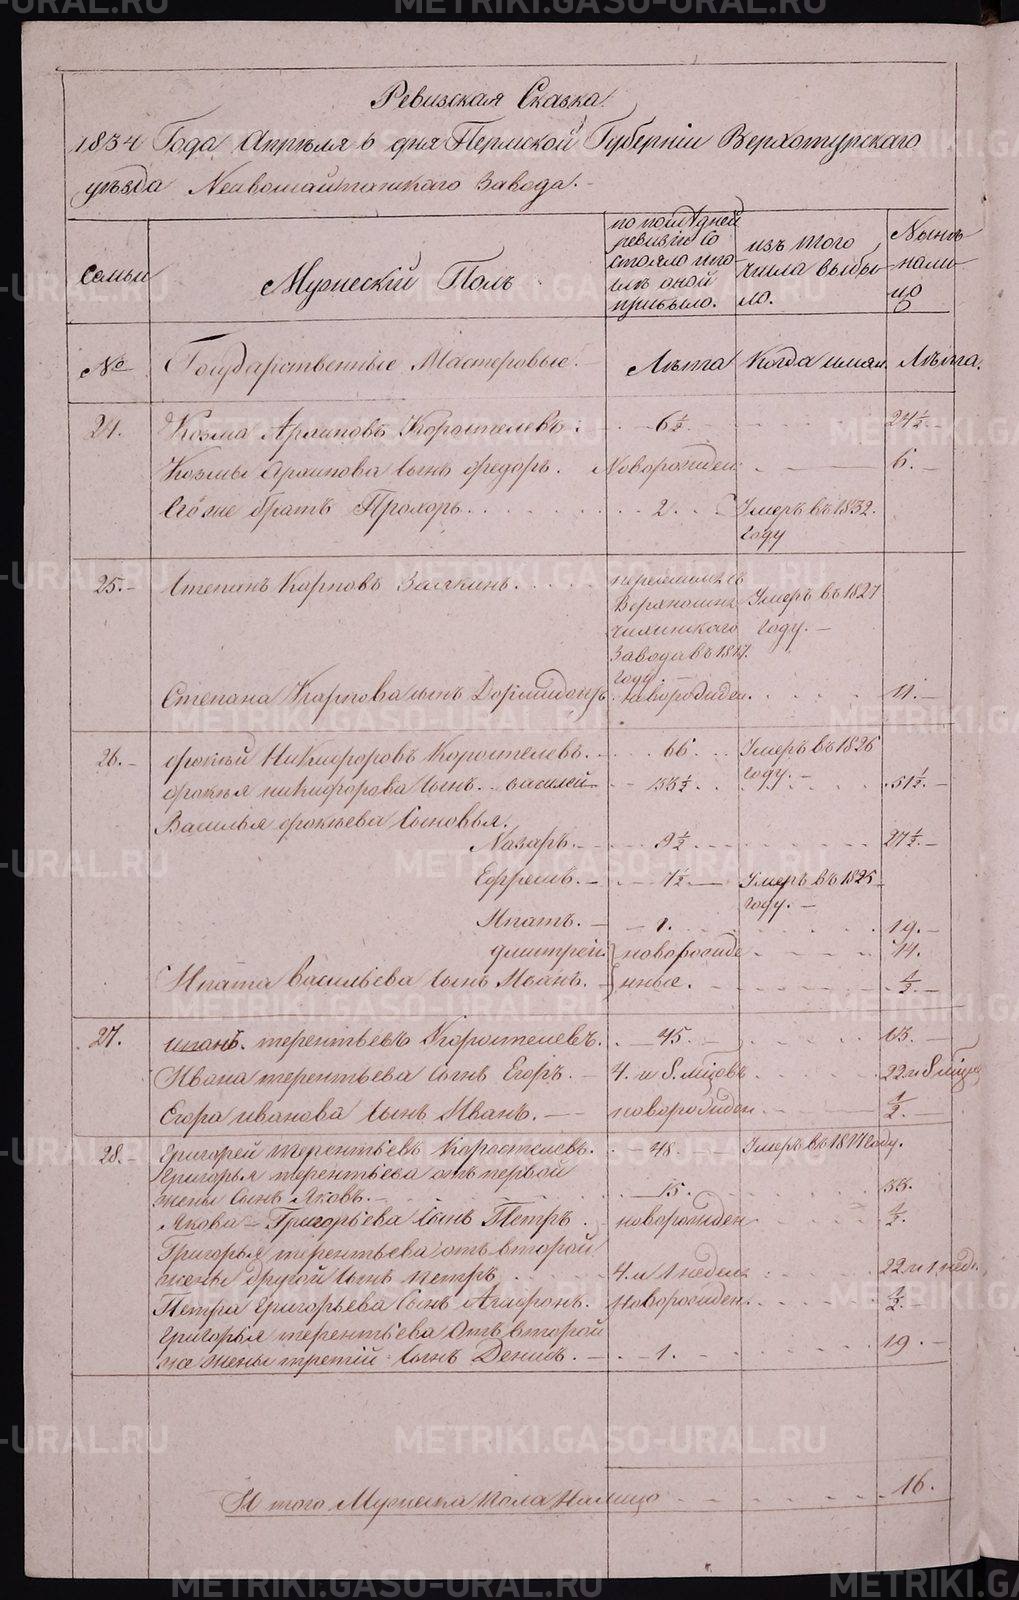 Ревизская Сказка
1834 Года Апреля 6 дня Пермской Губернiи Верхотурскаго
уѣзда Нейвошайтанскаго Завода.
семьи
Мужескiй Полъ
по последней ревизiи состояло и после оной прибыло.
изъ того числа выбыло.
Нынѣ налицо
№
Государственные Мастеровые.
Лѣта
Когда имян.
Лѣта.
24. Козма Архиповъ Коростелевъ. 6½ 24½
Козмы Архипова сынъ Федоръ. Новорожден. 6.
Его же братъ Прохоръ. 2. Умеръ въ 1832.
году
25. Степанъ Карповъ перемещенъ съ
Умеръ въ 1827
году.
Завода въ 1817.
году.
Степана Карпова сынъ Дормидонтъ. новорожден. 11.
26. Фокѣй Никифоровъ Коростелевъ. 66. Умеръ въ 1826
году.
Фокѣя Никифорова сынъ Василей 33½. 51½.
Василья Фокѣева Сыновья.
Назаръ. 9½ 27½.
Ефремъ. 7½ Умеръ въ 1825
году.
Ипатъ. 1. 19.
Дмитрей. новорожде 14.
Ипата Васильева сынъ Иванъ. нные. ½.
27. Иванъ Терентьевъ Коростелевъ. 45. 63.
Ивана Терентьева сынъ Егоръ. 4. и 8. мцовъ 22 и 8 мцов
Егора Иванова сынъ Иванъ. новорожден. ½.
28. Григорей Терентьевъ Коростелевъ. 48. Умеръ въ 1817 году.
Григорья Терентьева отъ первой
жены сынъ Яковъ. 15. 33.
Якова Григорьева сынъ Петръ. новорожден ½.
Григорья Терентьева отъ второй
жены другой сынъ Петръ 4. и 1 недел. 22 и 1 нед.
Петра Григорьева сынъ Агафонъ. Новорожден. ½.
Григорья Терентьева отъ второй
же жены третiй сынъ Денисъ. 1. 19.
И того Мужеска пола Налицо 16.
METRIKI.GASO-URAL.RU